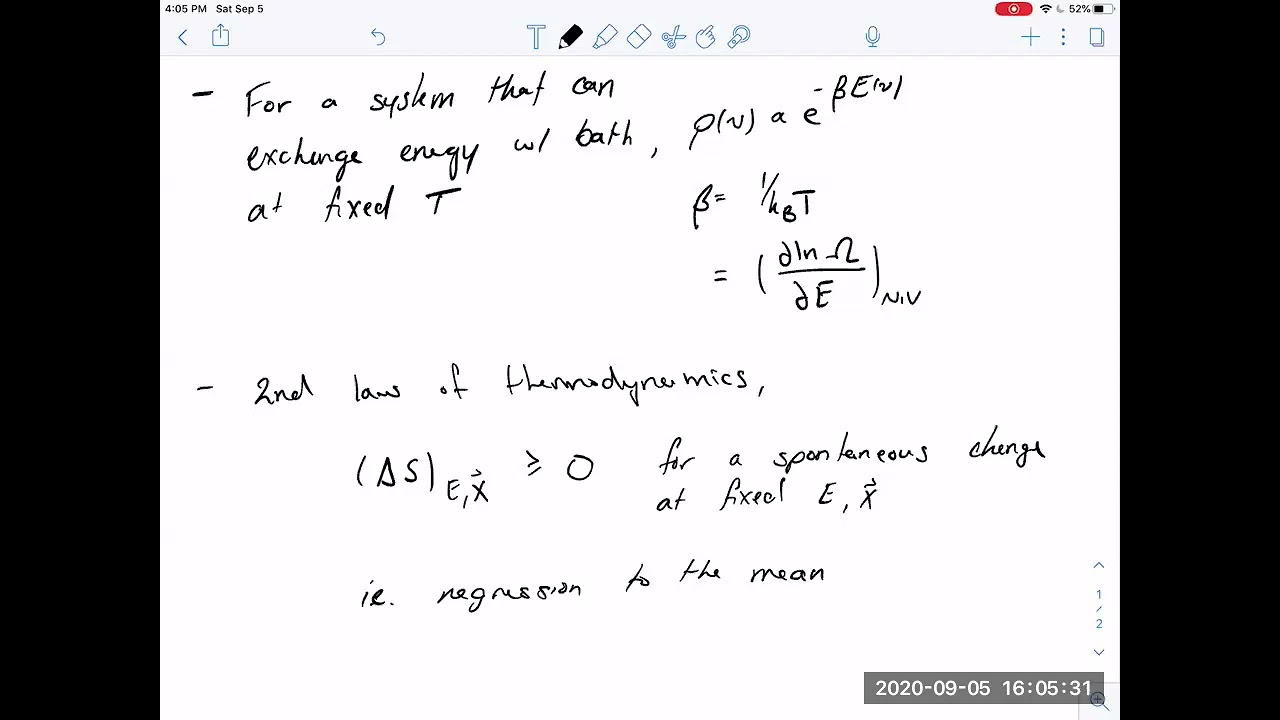 4:05 PM Sat Sep 5
52%
T
- For a system that can
exchange energy w/ bath, ρ(ν) ∝ e^{-βE(ν)}
at fixed T
β = 1/k_B T
= (∂ln Ω / ∂E)_{N,V}
- 2nd law of thermodynamics,
(ΔS)_{E,X⃗} ≥ 0 for a spontaneous change
at fixed E, X⃗
ie. regression to the mean
1
/
2
2020-09-05 16:05:31